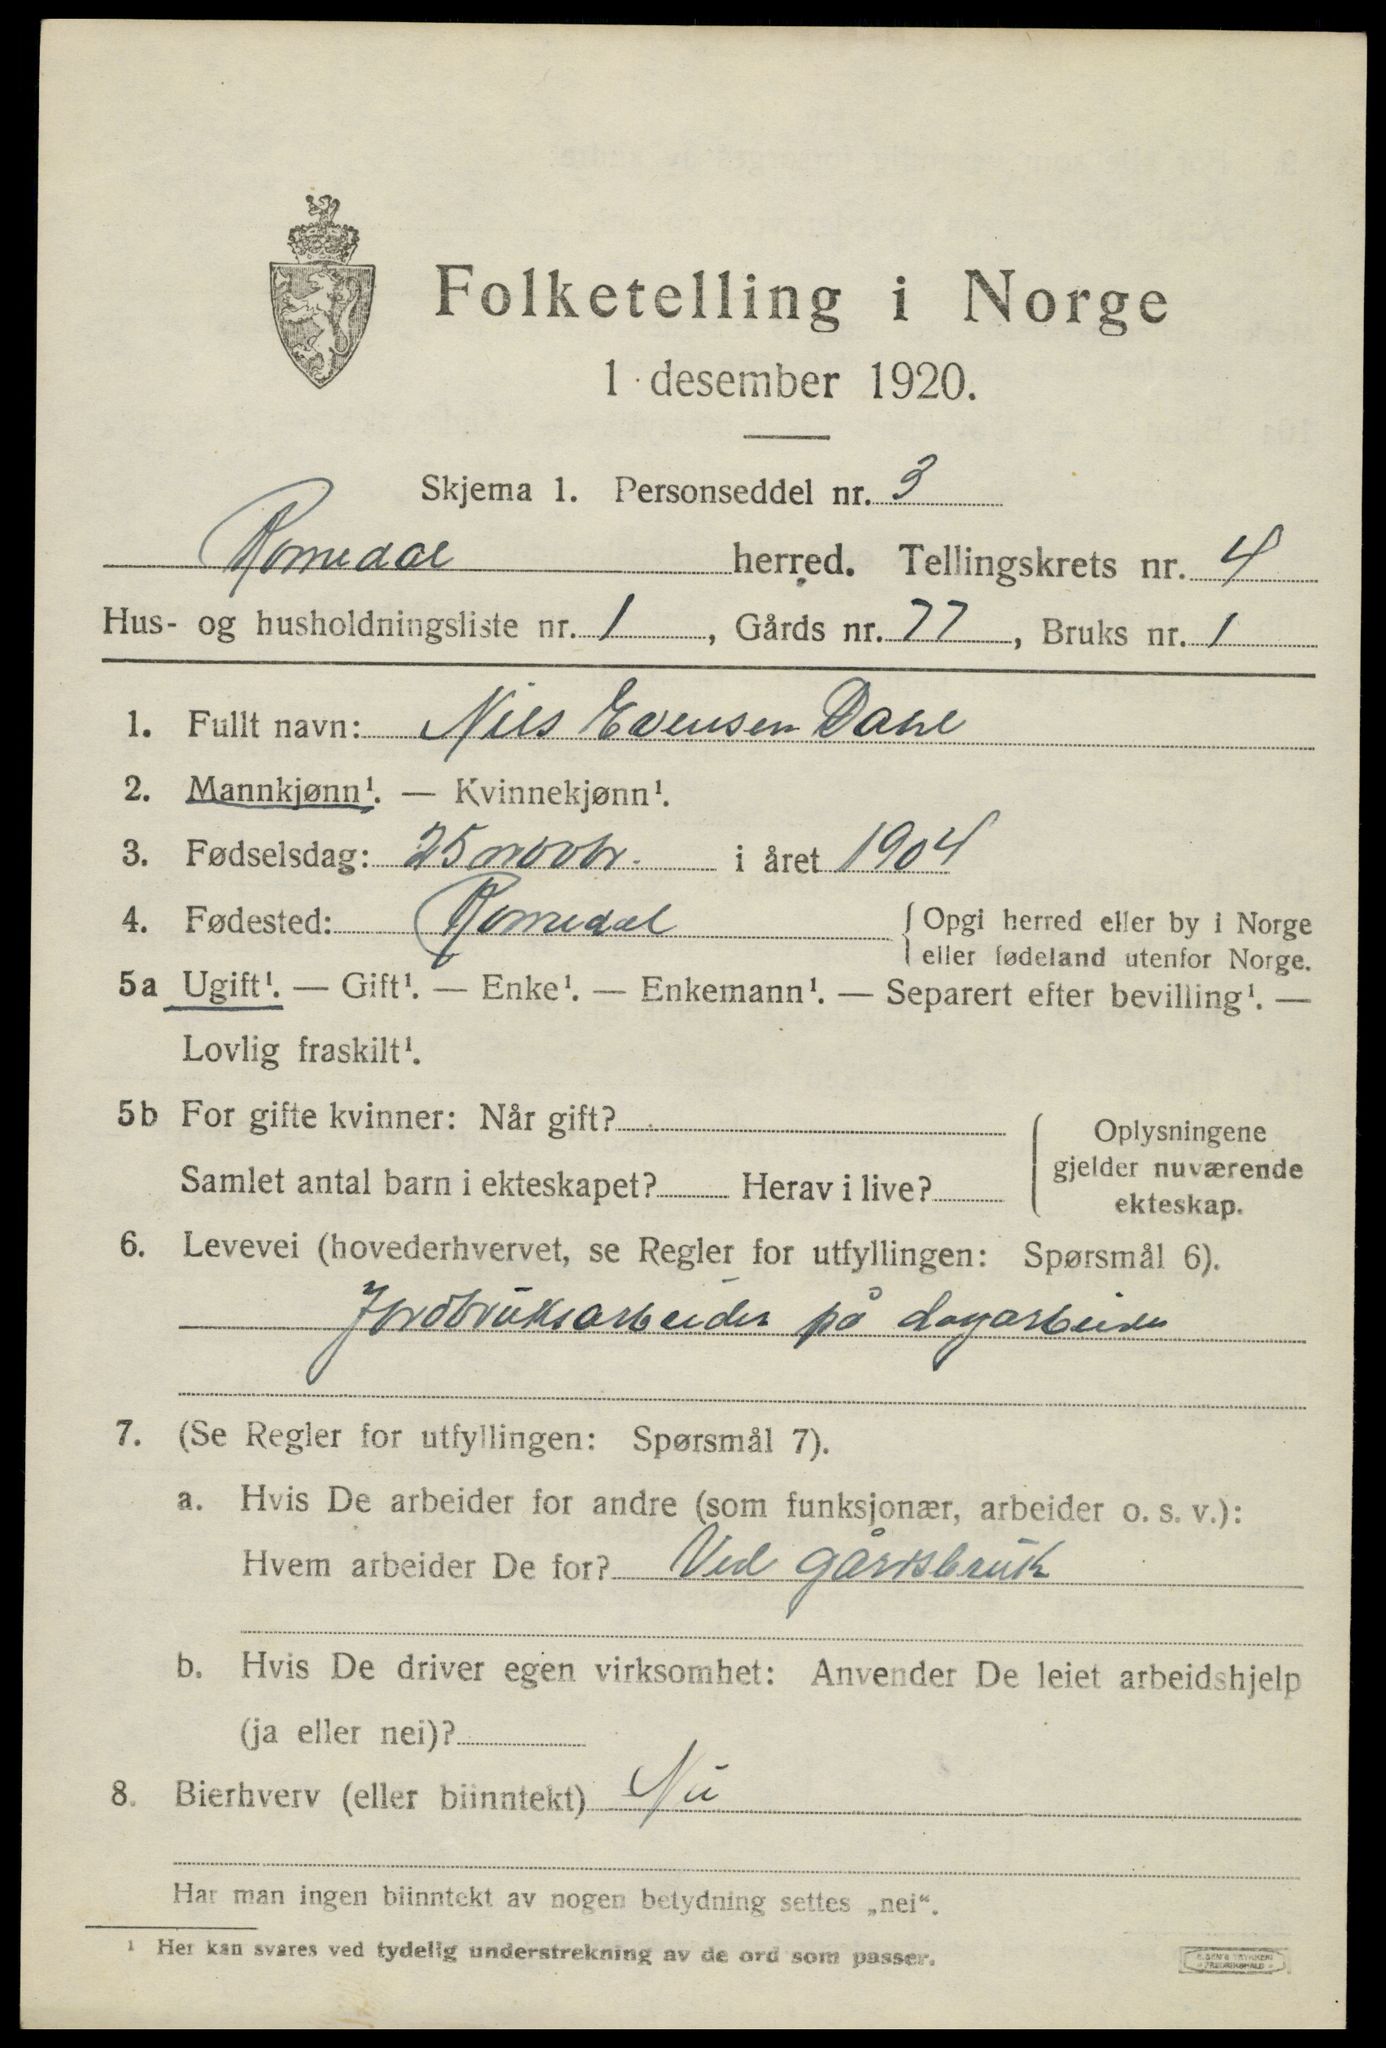 Folketelling i Norge
1 desember 1920.
Skjema 1. Personseddel nr. 3
Romedal herred. Tellingskrets nr. 4
Hus- og husholdningsliste nr. 1, Gårds nr. 77, Bruks nr. 1
1. Fullt navn: Nils Evensen Dahl
2. Mannkjønn¹. — Kvinnekjønn¹.
3. Fødselsdag: 25 novbr. i året 1904
4. Fødested: Romedal { Opgi herred eller by i Norge
eller fødeland utenfor Norge.
5a Ugift¹. — Gift¹. — Enke¹. — Enkemann¹. — Separert efter bevilling¹. —
Lovlig fraskilt¹.
5b For gifte kvinner: Når gift?
Samlet antal barn i ekteskapet? Herav i live?
Oplysningene
gjelder nuværende
ekteskap.
6. Levevei (hovederhvervet, se Regler for utfyllingen: Spørsmål 6).
Jordbruksarbeider på dagarbeide
7. (Se Regler for utfyllingen: Spørsmål 7).
a. Hvis De arbeider for andre (som funksjonær, arbeider o. s. v.):
Hvem arbeider De for? Ved gårdsbruk
b. Hvis De driver egen virksomhet: Anvender De leiet arbeidshjelp
(ja eller nei)?
8. Bierhverv (eller biinntekt) Nei
Har man ingen biinntekt av nogen betydning settes „nei“.
¹ Her kan svares ved tydelig understrekning av de ord som passer.